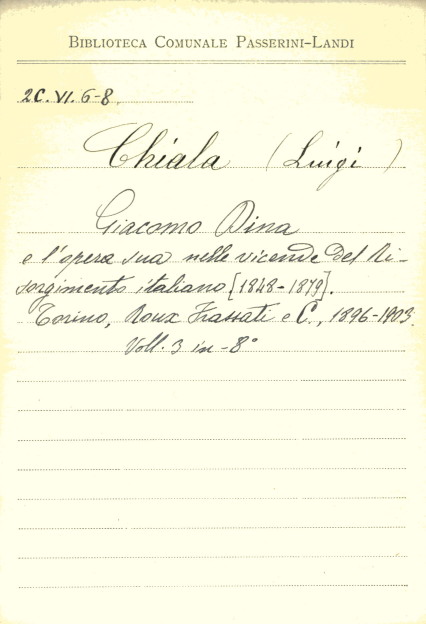 BIBLIOTECA COMUNALE PASSERINI-LANDI
2C.VI.6-8.
Chiala (Luigi)
Giacomo Dina
e l'opera sua nelle vicende del Ri-
sorgimento italiano [1848-1879].
Torino, Roux Frassati e C., 1896-1903.
Voll. 3 in-8°